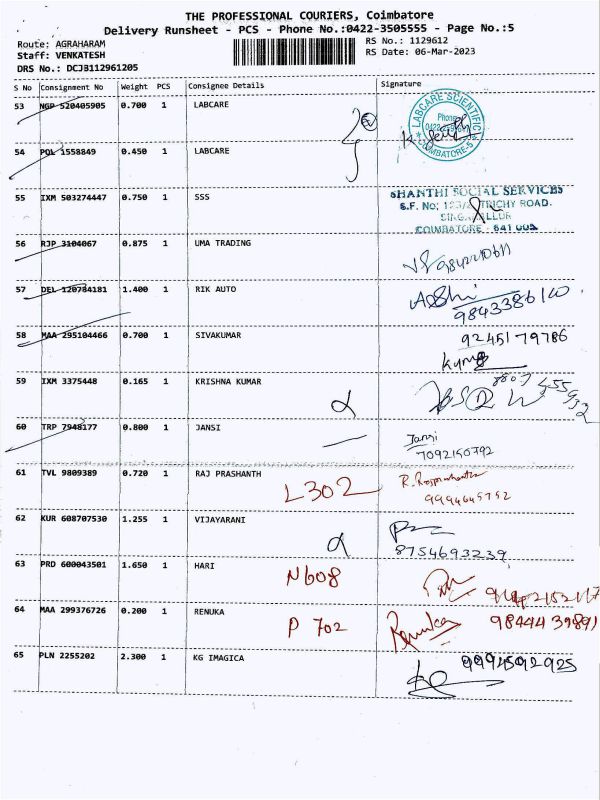 THE PROFESSIONAL COURIERS, Coimbatore
Delivery Runsheet - PCS - Phone No.:0422-3505555 - Page No.:5
Route: AGRAHARAM
RS No.: 1129612
Staff: VENKATESH
RS Date: 06-Mar-2023
DRS No.: DCJB112961205
S No Consignment No Weight PCS Consignee Details Signature
53 NGP 520405905 0.700 1 LABCARE
LABCARE SCIENTIFIC
Phone
COIMBATORE-5
54 POL 1558849 0.450 1 LABCARE
55 IXM 503274447 0.750 1 SSS
SHANTHI SOCIAL SERVICES
S.F. No: TRICHY ROAD.
COIMBATORE - 641 005
56 RJP 3104067 0.875 1 UMA TRADING
57 DEL 120784181 1.400 1 RIK AUTO
9843386140
58 MAA 295104466 0.700 1 SIVAKUMAR
9245179786
Kumar
59 IXM 3375448 0.165 1 KRISHNA KUMAR
60 TRP 7948177 0.800 1 JANSI
Jansi
7092150792
61 TVL 9809389 0.720 1 RAJ PRASHANTH
L302
R. Rajprashanth
9994645752
62 KUR 608707530 1.255 1 VIJAYARANI
8754693239
63 PRD 600043501 1.650 1 HARI
N608
64 MAA 299376726 0.200 1 RENUKA
P 702
Renuka
9844439891
65 PLN 2255202 2.300 1 KG IMAGICA
9994592925